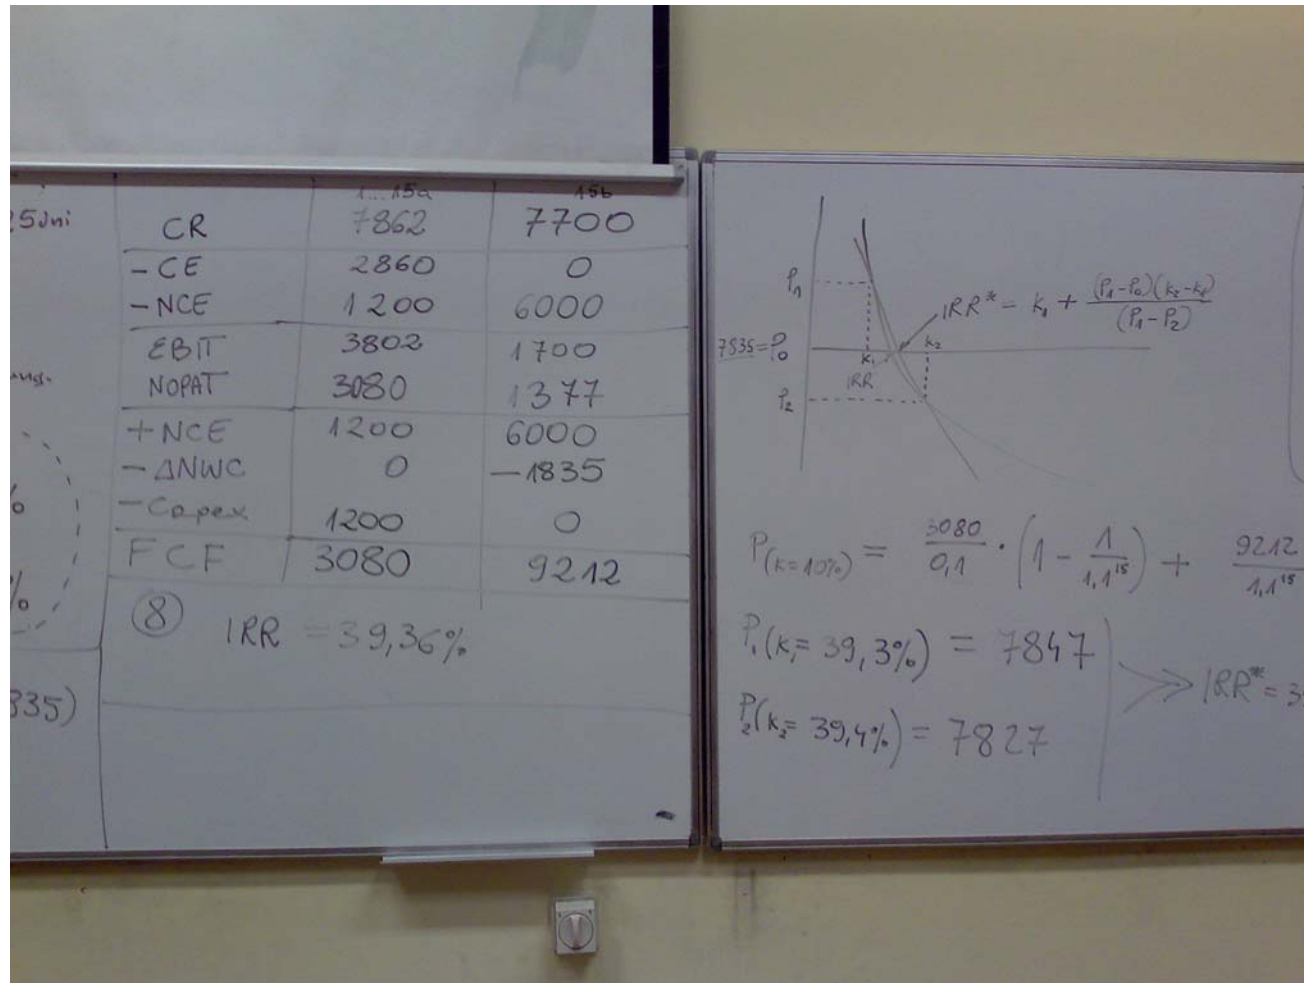 5dni
1...15a 15b
CR 7862 7700
-CE 2860 0
-NCE 1200 6000
EBIT 3802 1700
NOPAT 3080 1377
+NCE 1200 6000
-ΔNWC 0 -1835
-Capex 1200 0
FCF 3080 9212
⑧ IRR = 39,36%
%
%
835)
P₁
IRR* = k₁ + (P₁-P₀)(k₂-k₁) / (P₁-P₂)
7835 = P₀
k₁ k₂
IRR
P₂
P(k=10%) = 3080/0,1 · (1 - 1/1,1¹⁵) + 9212/1,1¹⁵
P₁(k₁= 39,3%) = 7847
IRR* = 3
P₂(k₂= 39,4%) = 7827